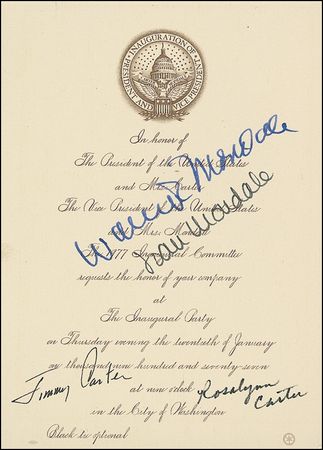 INAUGURATION OF PRESIDENT AND VICE PRESIDENT
In honor of
The President of the United States
and Mrs. Carter
The Vice President of the United States
and Mrs. Mondale
The 1977 Inaugural Committee
requests the honor of your company
at
The Inaugural Party
on Thursday evening the twentieth of January
one thousand nine hundred and seventy-seven
at nine o'clock
in the City of Washington
Black tie optional
Walter Mondale
Joan Mondale
Jimmy Carter
Rosalynn
Carter